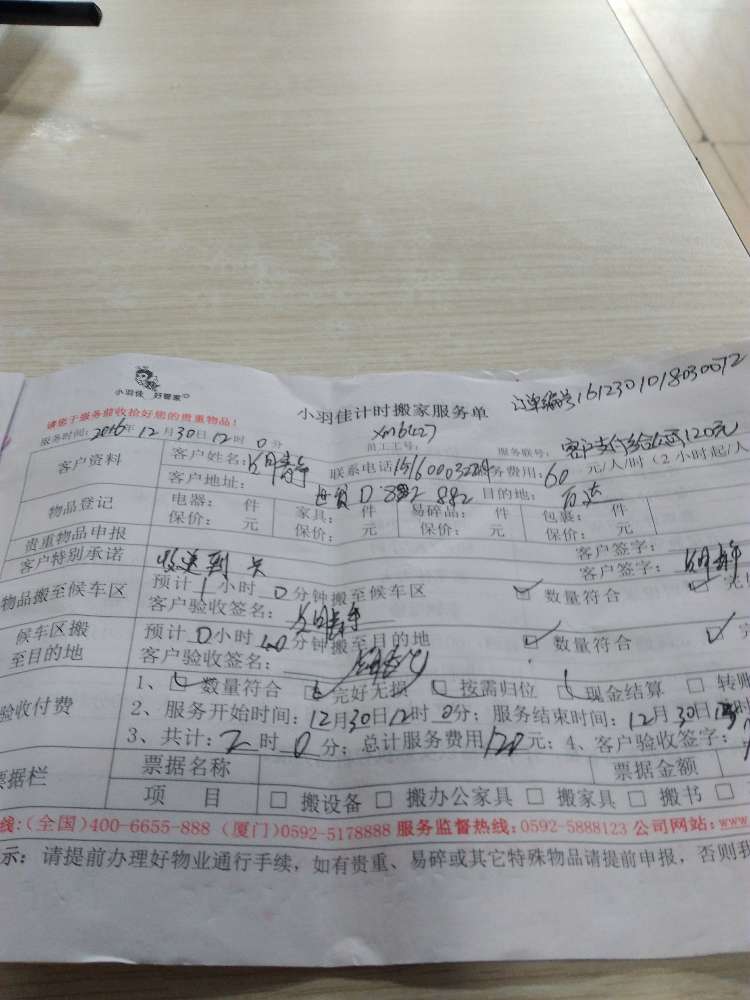 小羽佳 好管家
小羽佳计时搬家服务单
订单编号1612301018030072
请您于服务前收拾好您的贵重物品!
服务时间:2016年12月30日12时0分
员工工号:
服务联号:
客户支付给公司120元
客户资料
客户姓名:
联系电话
务费用:60 元/人/时(2小时起/人
客户地址:
目的地:
物品登记
电器: 件 家具: 件 易碎品: 件 包裹: 件
贵重物品申报
保价: 元 保价: 元 保价: 元 保价: 元
客户签字:
客户特别承诺
客户签字:
物品搬至候车区
预计1小时0分钟搬至候车区
数量符合
客户验收签名:
候车区搬至目的地
预计0小时40分钟搬至目的地
数量符合
客户验收签名:
验收付费
1、数量符合 完好无损 按需归位 现金结算 转账
2、服务开始时间:12月30日12时0分;服务结束时间:12月30日
3、共计:2时0分;总计服务费用120元;4、客户验收签字:
票据栏
票据名称 票据金额
项目 搬设备 搬办公家具 搬家具 搬书
线:(全国)400-6655-888 (厦门)0592-5178888 服务监督热线:0592-5888123 公司网站:www.
示:请提前办理好物业通行手续,如有贵重、易碎或其它特殊物品请提前申报,否则我